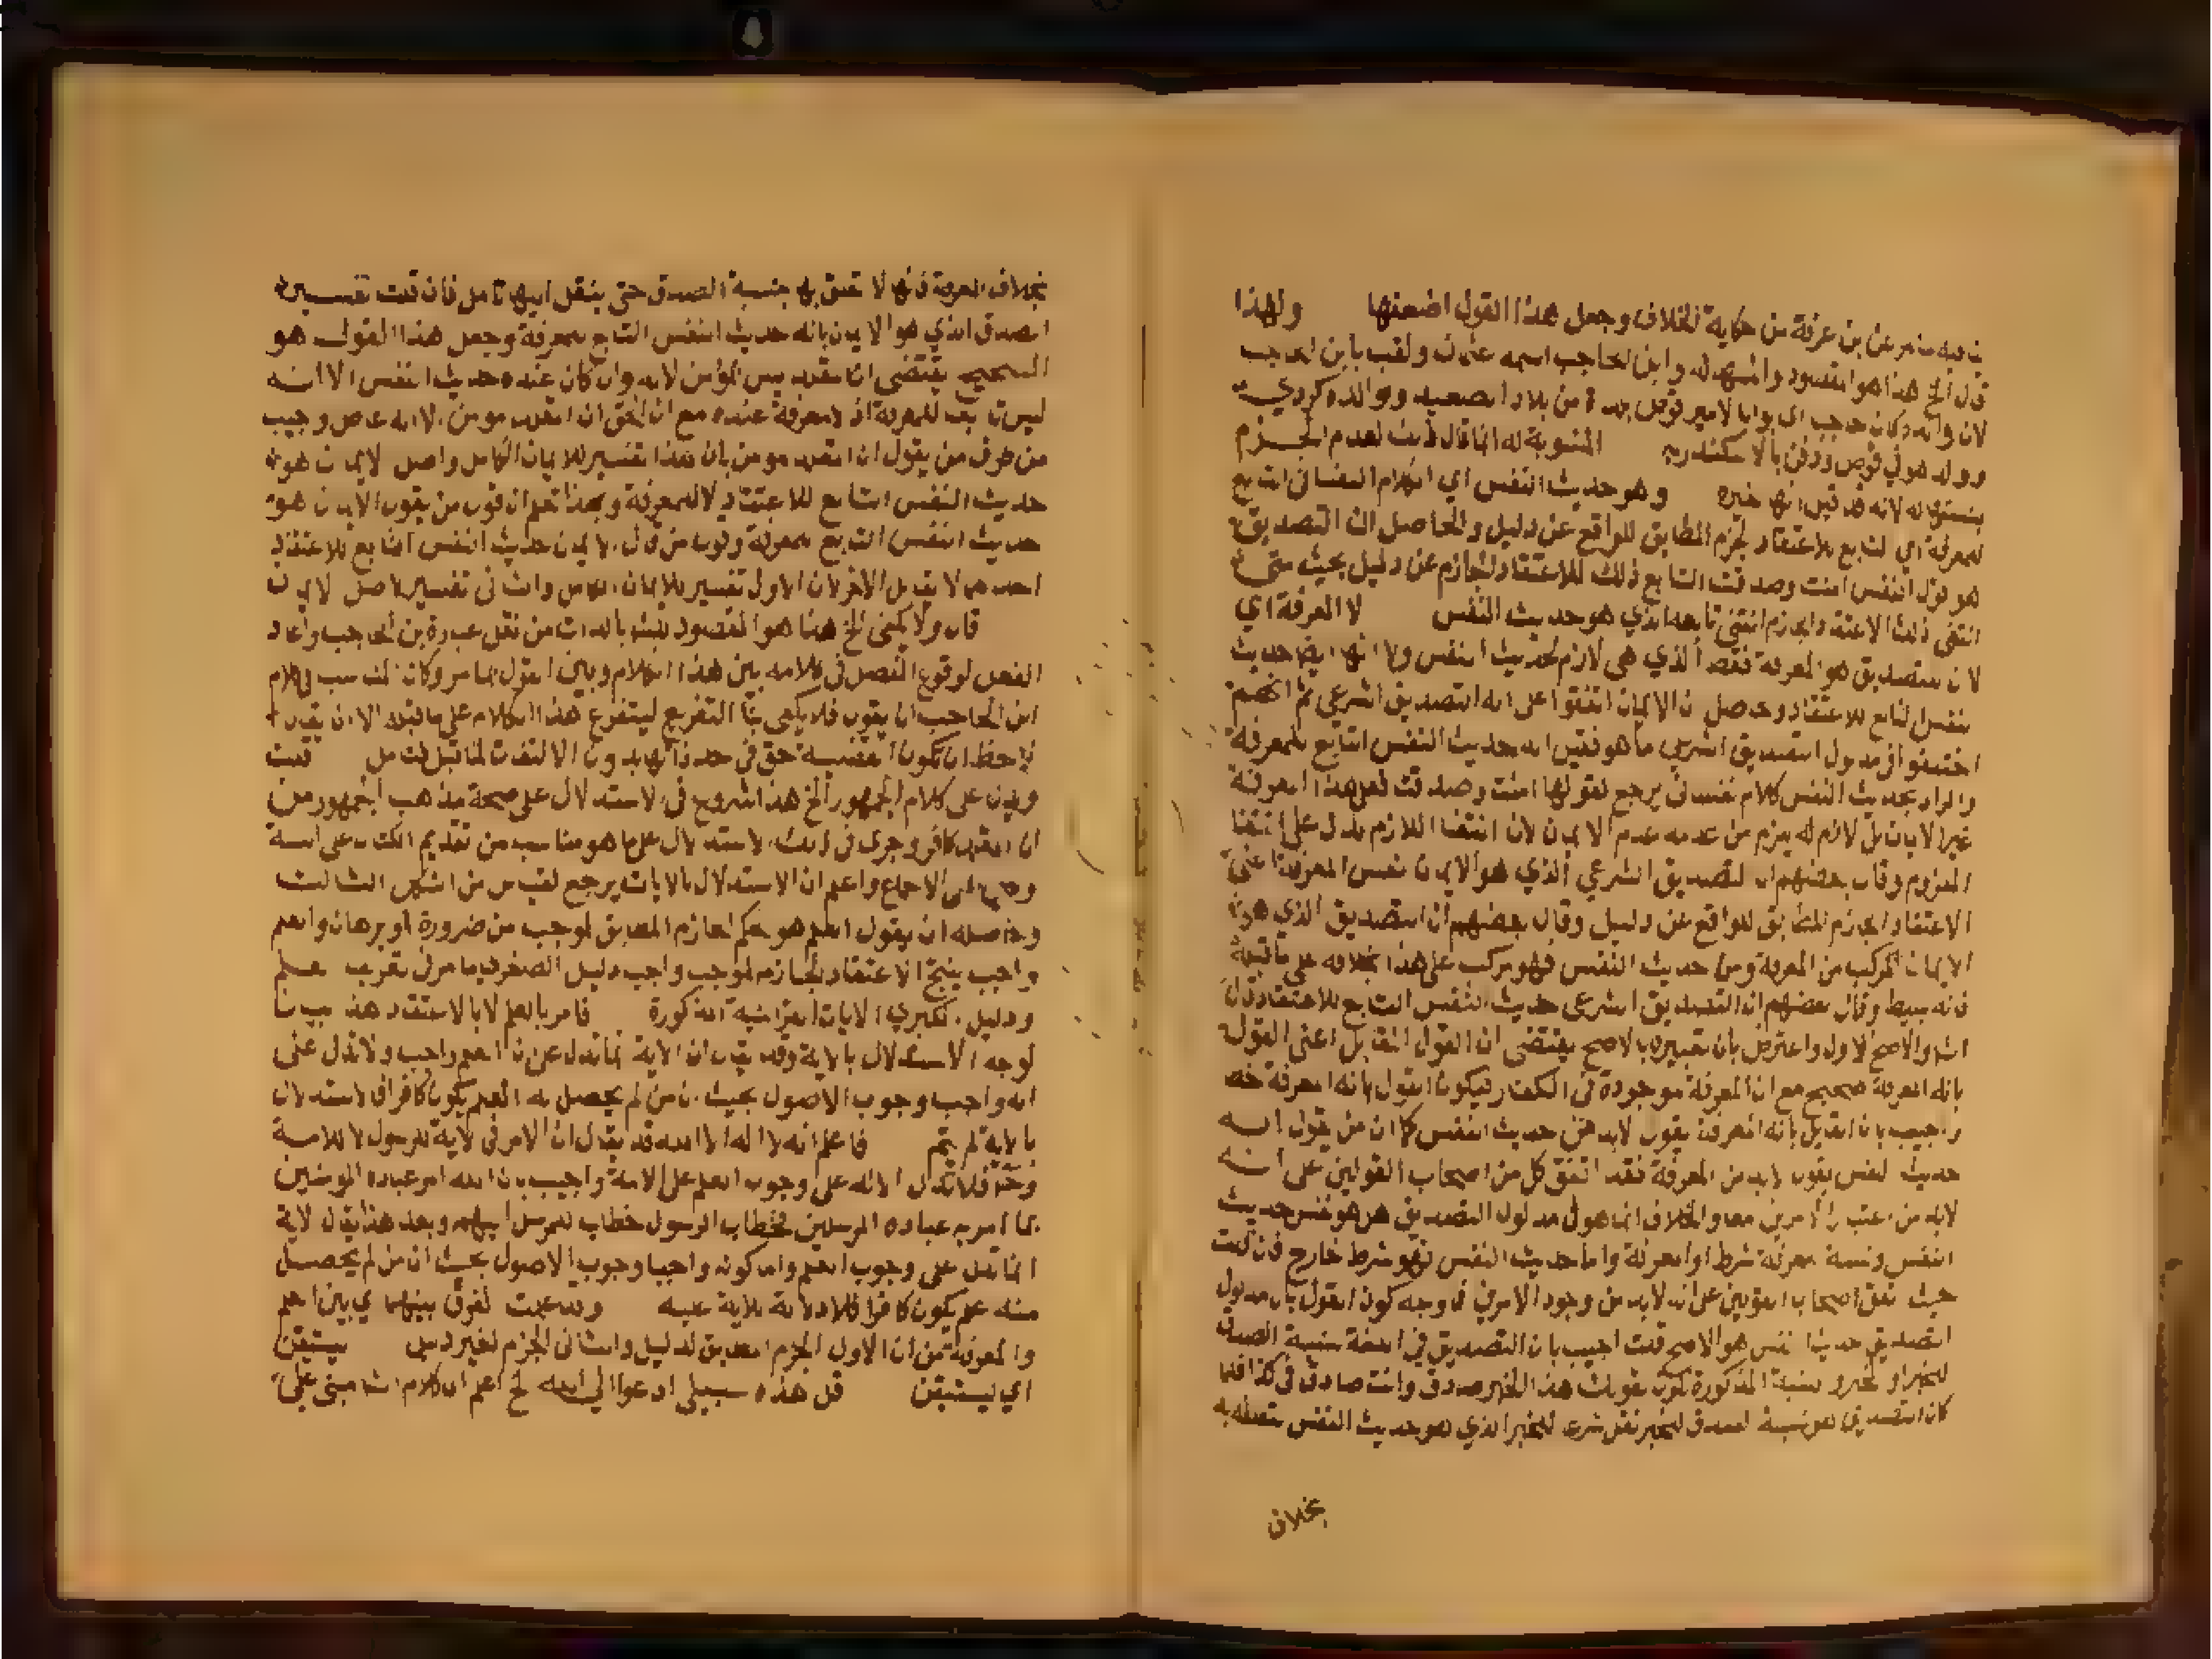 فيه ما مر عن بن عرفة من حكاية الخلاف وجعل هذا القول اضعفها ولهذا
قال الخ هذا هو المقصود وابن الحاجب اسمه عثمان ولقب بابن الحاجب
لان والده كان حاجب لامير قوص بلدة من بلاد الصعيد ووالده كردي
وولد هو في قوص ودفن بالاسكندرية المنسوبة له انما قال ذلك لعدم الجزم
بنسبتها له لانه قد قيل انها لغيره وهو حديث النفس اي الكلام النفساني التابع
للمعرفة اي التابع للاعتقاد الجزم المطابق للواقع عن دليل والحاصل ان التصديق
هو قول النفس امنت وصدقت التابع ذلك للاعتقاد الجازم عن دليل بحيث متى
انتفى ذلك الاعتقاد الجازم انتفى تابعه الذي هو حديث النفس لا المعرفة اي
لا ان التصديق هو المعرفة فقط الذي هي لازم لحديث النفس ولا انها ايضا حديث
النفس التابع للاعتقاد وحاصل ان الايمان اتفقوا على انه التصديق الشرعي ثم انهم
اختلفوا في مدلول التصديق الشرعي ما هو فقيل انه حديث النفس التابع للمعرفة
والمراد بحديث النفس كلام نفساني يرجع لقولها امنت وصدقت فعلى هذا المعرفة
غير الايمان بل لازم له يلزم من عدمه عدم الايمان لان انتفا اللازم يدل على انتفا
الملزوم وقال بعضهم ان التصديق الشرعي الذي هو الايمان نفس المعرفة اعني
الاعتقاد الجازم المطابق للواقع عن دليل وقال بعضهم ان التصديق الذي هو
الايمان المركب من المعرفة ومن حديث النفس فهو مركب على هذا بخلافه على ما قبله
فانه بسيط وقال بعضهم ان التصديق الشرعي حديث النفس التابع للاعتقاد قال
الش والاصح الاول واعترض بان تعبيره بالاصح يقتضي ان القول المقابل اعني القول
بانه المعرفة صحيح مع ان المعرفة موجودة في الكفار فيكون القول بانه المعرفة خطا
واجيب بان القايل بانه المعرفة يقول لابد من حديث النفس كما ان من يقول انه
حديث النفس يقول لابد من المعرفة فقد اتفق كل من اصحاب القولين على انه
لابد من اعتبار الامرين معا والخلاف انما هو في مدلول التصديق هل هو نفس حديث
النفس ونسبة المعرفة شرط او المعرفة واما حديث النفس فهو شرط خارج فان قلت
حيث اتفق اصحاب القولين على انه لابد من وجود الامرين فما وجه كون القول بان مدلول
التصديق حديث النفس هو الاصح قلت اجيب بان التصديق في اللغة نسبة الصدق
للخبر او المخبر ونسبة المذكورة تكون بقولك هذا الخبر صدق وانت صادق في كذا فلما
كان التصديق لغو نسبة الصدق للخبر نقل شرعا للخبر الذي هو حديث النفس لتعلقه به
بخلاف
بخلاف المعرفة فانها لا تعلق بها بنسبة الصدق حتى ينقل اليها تامل فان قلت تفسيره
التصديق الذي هو الايمان بانه حديث النفس التابع للمعرفة وجعل هذا القول هو
الصحيح يقتضي ان المقلد ليس بمؤمن لانه وان كان عنده حديث النفس الا انه
ليس تابعا للمعرفة اذ لا معرفة عنده مع ان الحق ان المقلد مومن الا انه عاص واجيب
من طرف من يقول ان المقلد مومن بان هذا تفسير للايمان الكامل واصل الايمان هو
حديث النفس التابع للاعتقاد لا للمعرفة وبهذا تعلم ان قول من يقول الايمان هو
حديث النفس التابع للمعرفة وقول من قال الايمان حديث النفس التابع للاعتقاد
احدهما لا يقابل الاخر لان الاول تفسير للايمان الكامل والثاني تفسير لاصل الايمان
قال ولا يكفي الخ هذا هو المقصود للش بالذات من نقل عبارة بن الحاجب واعاد
الفعل لوقوع الفصل في كلامه بين هذا الكلام وبين القول بما مر وكان المناسب في كلام
ابن الحاجب ان يقول فلا يكفي بفا التفريع ليتفرع هذا الكلام على ما قبله الا ان يقال
لاحظ ان تكون القضية حق في حد ذاتها بدون الالتفات لما قبل تامل قلت
ويدل على كلام الجمهور الخ هذا شروع في الاستدلال على صحة مذهب الجمهور من
ان المقلد كافر وجرى في ذلك الاستدلال على ما هو مناسب من تقديم الكتاب على السنة
وهي على الاجماع واعلم ان الاستدلال بالايات يرجع لقياس من الشكل الثالث
وحاصله ان يقول العلم هو حكم الجازم المطابق لموجب من ضرورة او برهان والعلم
واجب ينتج الاعتقاد الجازم لموجب واجب دليل الصغرى ما مر في تعريف العلم
ودليل الكبرى الايات القرانية المذكورة فامر بالعلم لا بالاعتقاد هذا بيان
لوجه الاستدلال بالاية وقد يقال ان الاية انما تدل على ان العلم واجب ولا تدل على
انه واجب وجوب الاصول بحيث ان من لم يحصل له العلم يكون كافرا فالاستدلال
بالاية لم يتم فاعلم انه لا اله الا الله قد يقال ان الامر في الاية للرسول لا للامة
وحينئذ فلا تدل الاية على وجوب العلم على الامة واجيب بان الله امر عباده المومنين
بما امر به عباده المرسلين فخطاب الرسول خطاب للمرسل اليهم وبعد هذا يقال الاية
انما تدل على وجوب العلم واما كونه واجبا وجوب الاصول بحيث ان من لم يحصل
منه علم يكون كافرا فلا دلالة للاية عليه وقد علمت الفرق بينهما اي بين العلم
والمعرفة من ان الاول الجزم المطابق لدليل والثاني الجزم لغير دليل ليستيقن
اي ليستيقن قل هذه سبيلي ادعوا الي الله الخ اعلم ان كلام الش مبني على